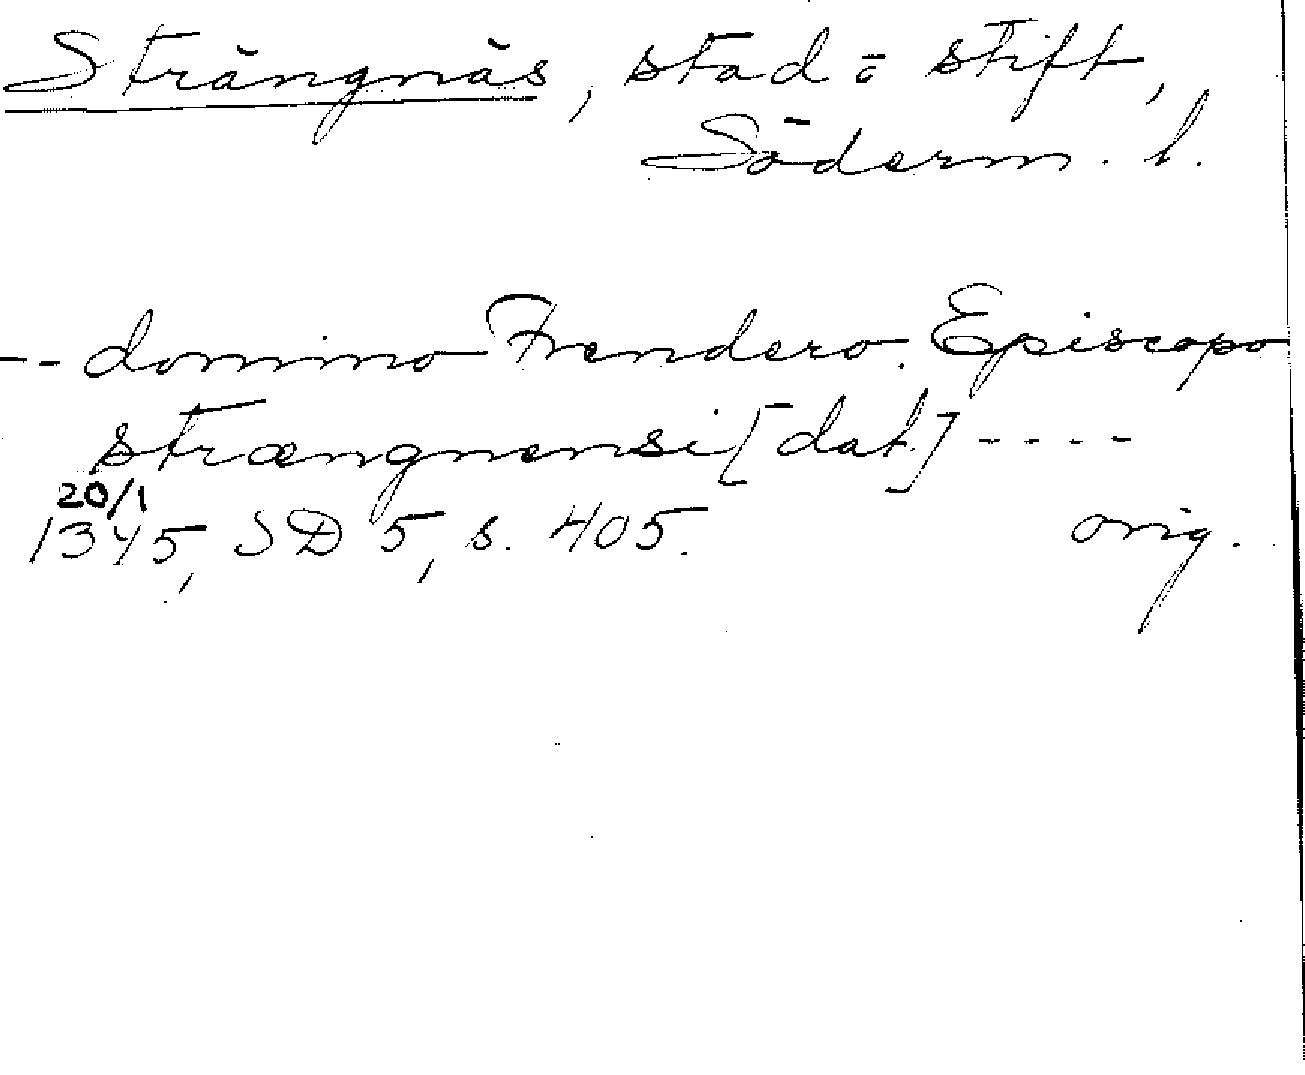 Strängnäs, stad o stift,
Söderm. l.
-- domino Frendero. Episcopo
strængnensi [dat.] ----
20/1
1345, SD 5, s. 405. orig.